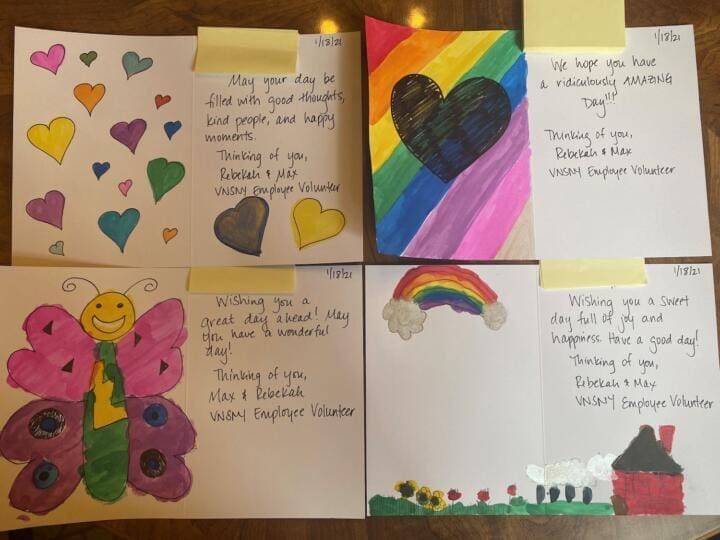 1/18/21
May your day be
filled with good thoughts,
kind people, and happy
moments.
Thinking of you,
Rebekah & Max
VNSNY Employee Volunteer
1/18/21
We hope you have
a ridiculously AMAZING
Day!!!
Thinking of you,
Rebekah & Max
VNSNY Employee Volunteer
1/18/21
Wishing you a
great day ahead! May
you have a wonderful
day!
Thinking of you,
Max & Rebekah
VNSNY Employee Volunteer
1/18/21
Wishing you a sweet
day full of joy and
happiness. Have a good day!
Thinking of you,
Rebekah & Max
VNSNY Employee Volunteer